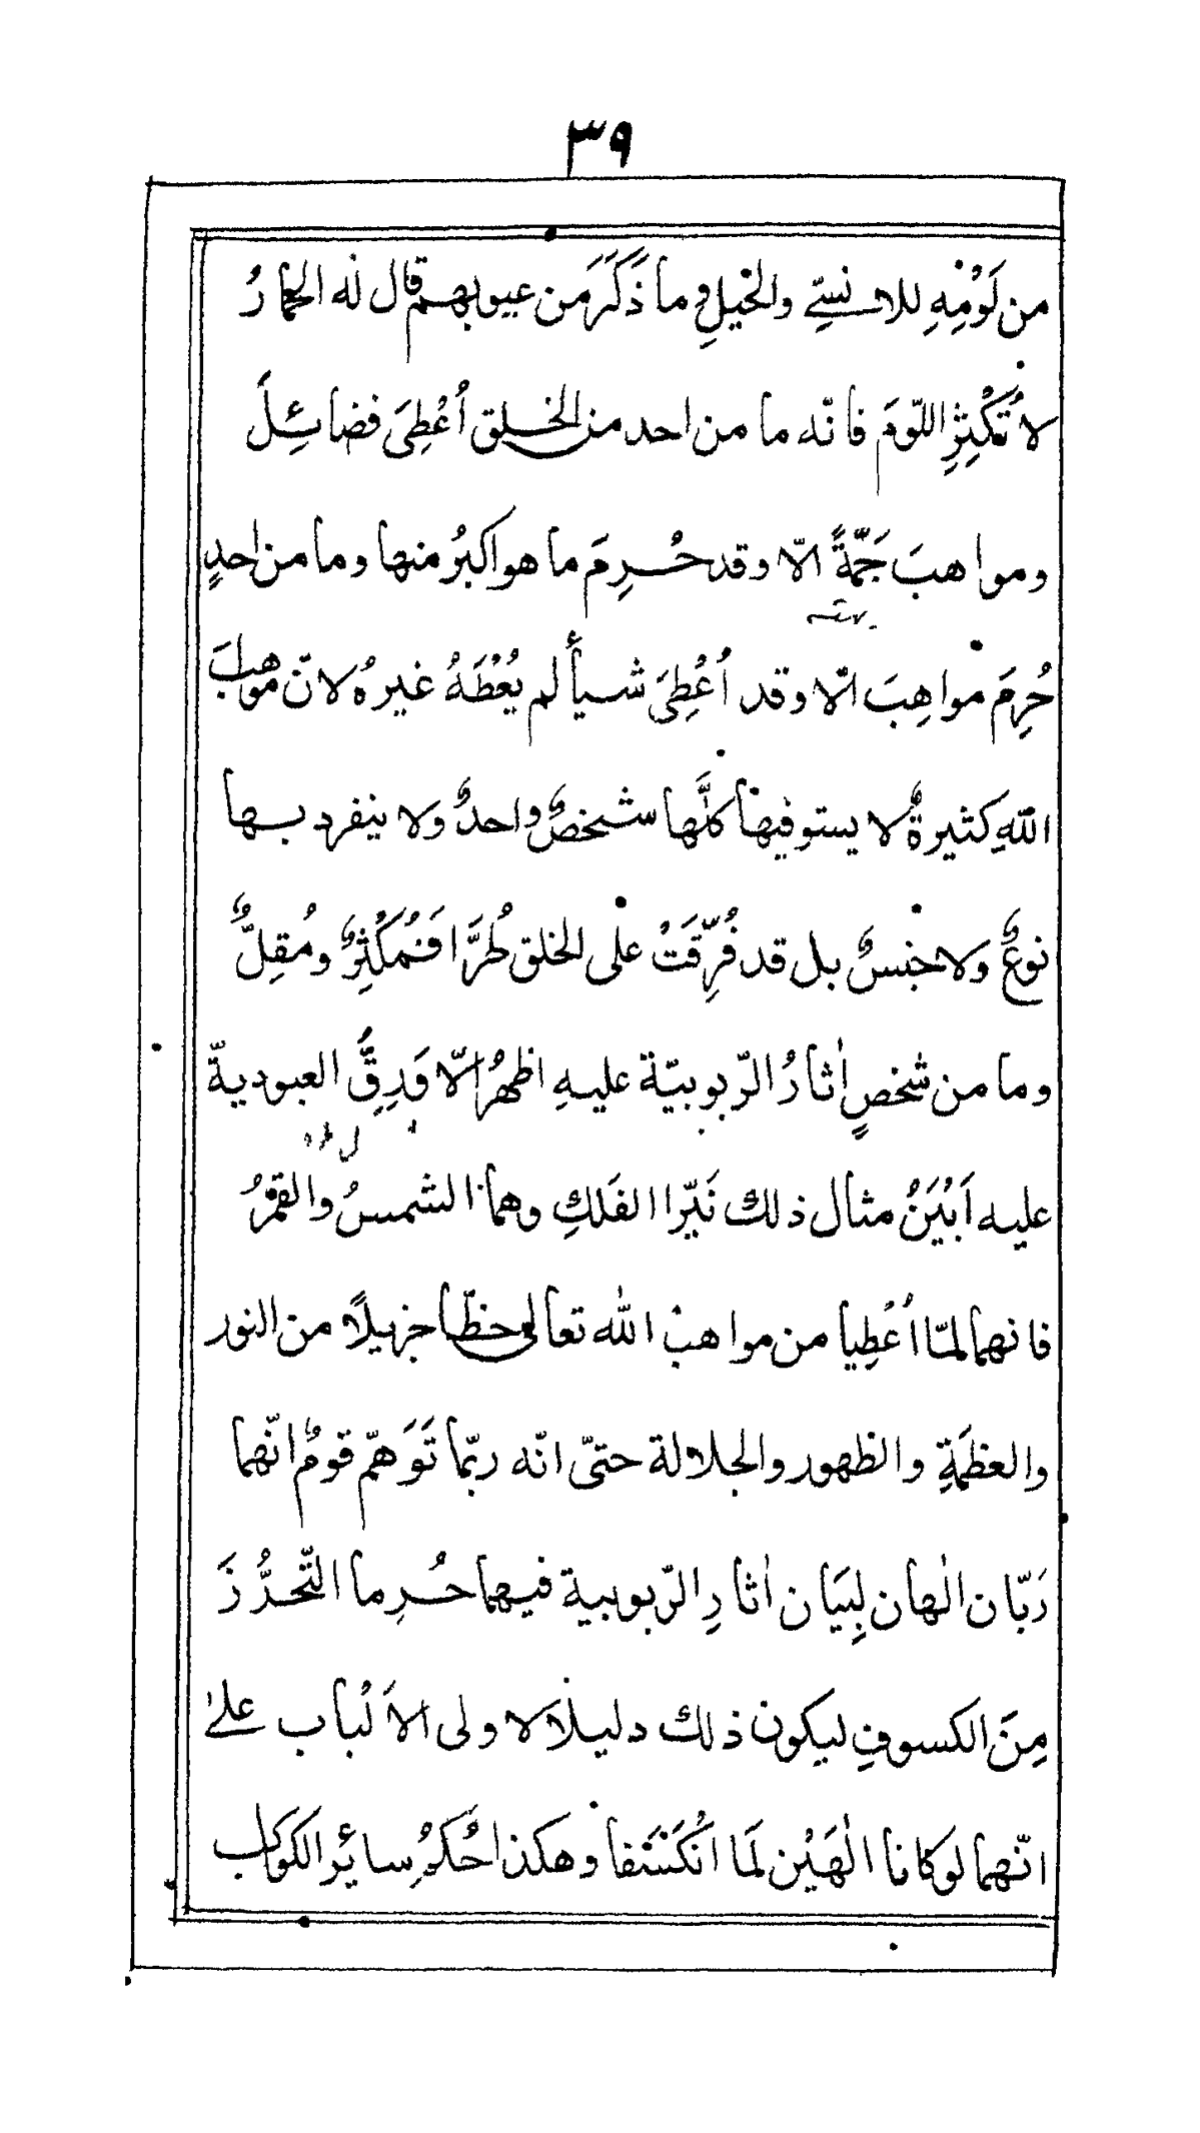 ٣٩
من لَوْمِهِ للانسىِّ والخيلِ وما ذَكَرَ من عيوبهم قال له الحمارُ
لا تُكْثِرِ اللّومَ فانّه ما من احد من الخلق اُعْطِىَ فضائِلَ
ومواهبَ جَمَّةً الّا وقد حُرِمَ ما هو اكبرُ منها وما من احدٍ
حُرِمَ مواهِبَ الّا وقد اُعْطِىَ شيأ لم يُعْطَهُ غيرهُ لانّ مواهبَ
اللّٰهِ كثيرةٌ لا يستوفيها كلَّها شخصٌ واحدٌ ولا ينفرد بها
نوعٌ ولا جنسٌ بل قد فُرِّقَتْ على الخلق طُرَّا فَمُكْثِرٌ ومُقِلٌّ
وما من شخصٍ اٰثارُ الرّبوبيّة عليهِ اظهرُ الّا وَرِقُّ العبوديةّ
عليه اَبْيَنُ مثال ذلك نَيّرا الفَلكِ وهما الشمسُ والقمرُ
فانهما لمّا اُعْطِيا من مواهب اللّٰه تعالى حظّا جزيلًا من النور
والعظمَةِ والظهور والجلالة حتىّ انّه ربّما تَوَهّم قومٌ انّهما
رَبّان الٰهان لِبَيَان اٰثارِ الرّبوبية فيهما حُرِما التّحرُّزَ
مِنَ الكسوفِ ليكون ذلك دليلًا لاولى الاَلْباب علىٰ
انّهما لو كانا الٰهَيْن لَمَا انْكَسَفا وهكذا حُكمُ سائِر الكواكب